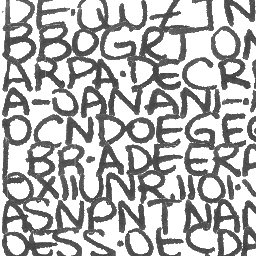 DE·QWZIN
BBOGRTON
ARPA·DECR
A-JANANI-·
OCNDOEGEG
BR·ADEERA
OXIIUNRIIOI:V
ASNPNTNAN
OESS·OECDA